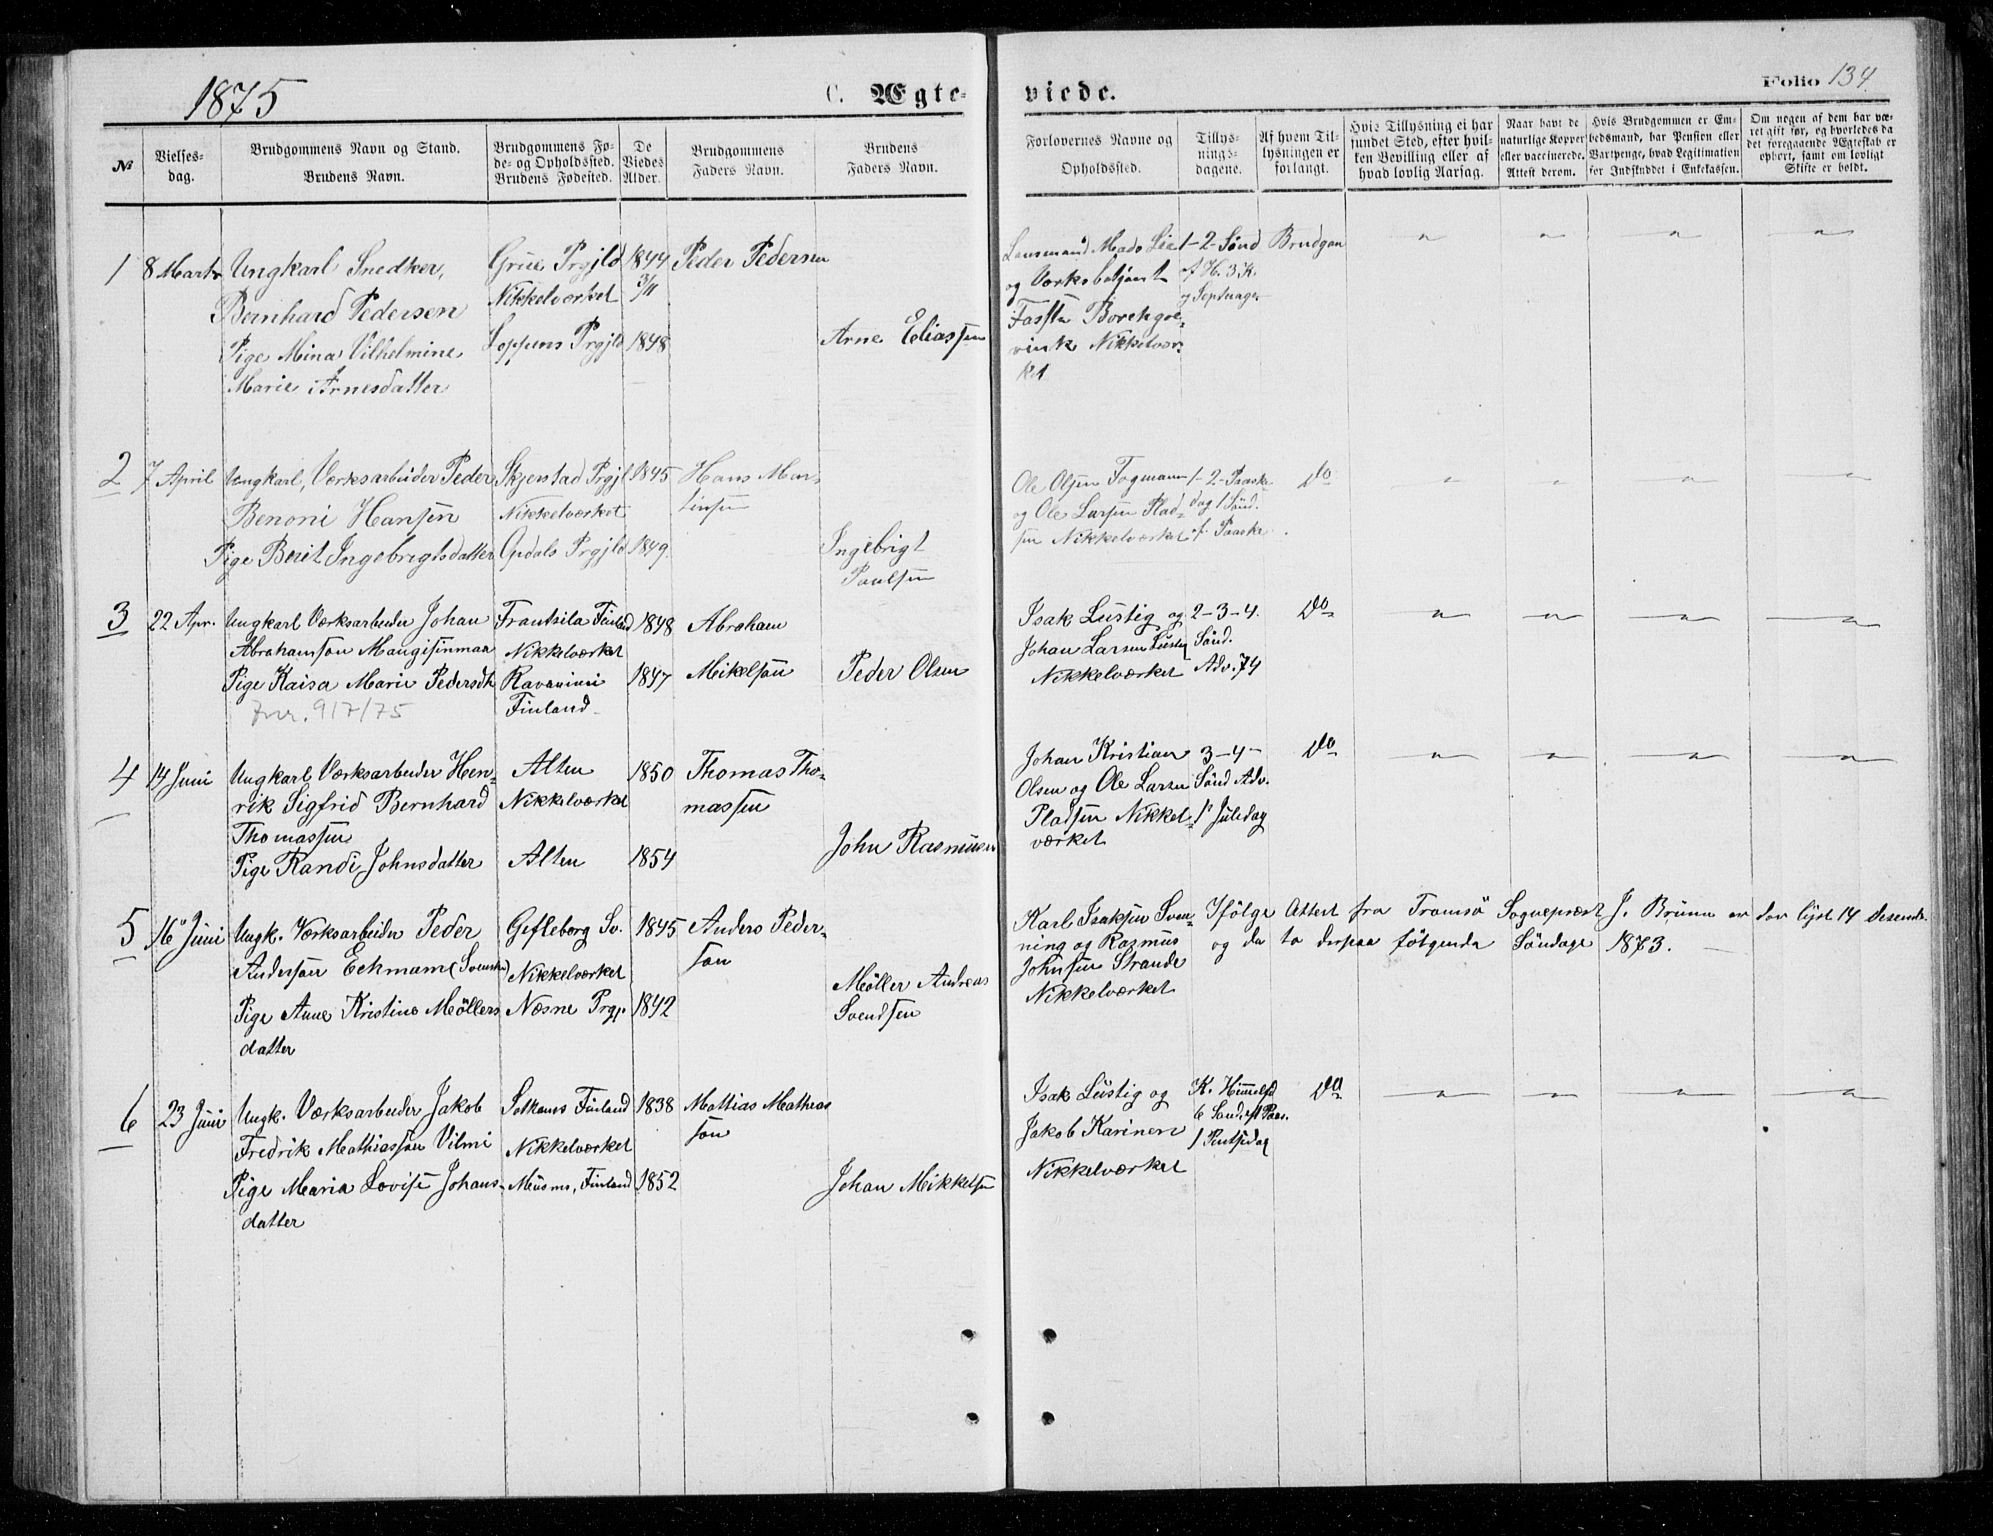 1875
C. Ægte-
viede.
Folio 134.
№
Vielses-
dag.
Brudgommens Navn og Stand.
Brudens Navn.
Brudgommens Fø-
de- og Opholdssted.
Brudens Fødested.
De
Viedes
Alder.
Brudgommens
Faders Navn.
Brudens
Faders Navn.
Forlovernes Navne og
Opholdssted.
Tillys-
nings-
dagene.
Af hvem Til-
lysningen er
forlangt.
Hvis Tillysning ei har
fundet Sted, efter hvil-
ken Bevilling eller af
hvad lovlig Aarsag.
Naar havt de
naturlige Kopper
eller vaccinerede.
Attest derom.
Hvis Brudgommen er Em-
bedsmand, har Pension eller
Vartpenge, hvad Legitimation
for Indskuddet i Enkekassen.
Om nogen af dem har væ-
ret gift før, og hvorledes da
det foregaaende Ægteskab er
ophørt, samt om lovligt
Skifte er holdt.
1
8 Marts
Ungkarl Snedker,
Bernhard Pedersen
Pige Mina Vilhelmine
Marie Arnesdatter
Grue Prgjld
Nikkelværket
Loppens Prgjld
1844
3/11
1848
Peder Pedersen
Arne Eliassen
Lensmand Mads Lie
og Værksbetjent
Nikkelvær-
ket
1-2- Sønd
f H. 3 K.
og Septuages
Brudgom
2
7 April
Ungkarl, Værksarbeider Peder
Benoni Hansen
Pige Berit Ingebrigtsdatter
Skjerstad Prgjl
Nikkelværket
Opdals Prgjld
1845
1849
Hans Mar-
tinsen
Ingebrigt
Paulsen
Ole Olsen Fagmann
og Ole Larsen Plad-
sen Nikkelværket
1-2- Paaske-
dag 1 Sønd.
f. Paaske
Do
3
22 Apr.
Ungkarl Værksarbeider Johan
Abrahamsson Mangisenmaa
Pige Kaisa Marie Pedersdtr
Fnr. 917/75
Frantsila Finland
Nikkelværket
Ravanimi
Finland
1848
1847
Abraham
Mikelson
Peder Olsen
Isak Lustig og
Johan Larsen Lustig
Nikkelværket
2-3-4.
Sønd.
Adv. 74
Do
4
14 Juni
Ungkarl Værksarbeider Hen-
rik Sigfrid Bernhard
Thomassen
Pige Randi Johnsdatter
Alten
Nikkelværket
Alten
1850
1854
Thomas Tho-
massen
John Rasmussen
Johan Kristian
Olsen og Ole Larsen
Pladsen Nikkel-
værket
3-4-
Sønd Adv.
1 Juledag
Do
5
16 Juni
Ungk. Værksarbeider Peder
Andersson Eckmam (Svensk)
Pige Anne Kristine Møllers
datter
Gefleborg Sv.
Nikkelværket
Næsne Prgj.
1845
1842
Anders Peder-
son
Møller Andreas
Svendsen
Karl Isaksen Sven-
ning og Rasmus
Johnsen Strande
Nikkelværket
Ifølge Attest fra Tromsø Sognepræst J. Bruun er der lyst 14 Desemb.
og de to derpaa følgende Søndage 1873.
6
23 Juni
Ungk. Værksarbeider Jakob
Fredrik Mathiasson Vilmi
Pige Maria Lovise Johans-
datter
Sotkamo Finland
Nikkelværket
Finland
1838
1852
Mattias Mathias
son
Johan Mikkelsen
Isak Lustig og
Jakob Karinen
Nikkelværket
K. Himmelfd
6 Sønd. eft Paas.
1 Pintsedag
Do